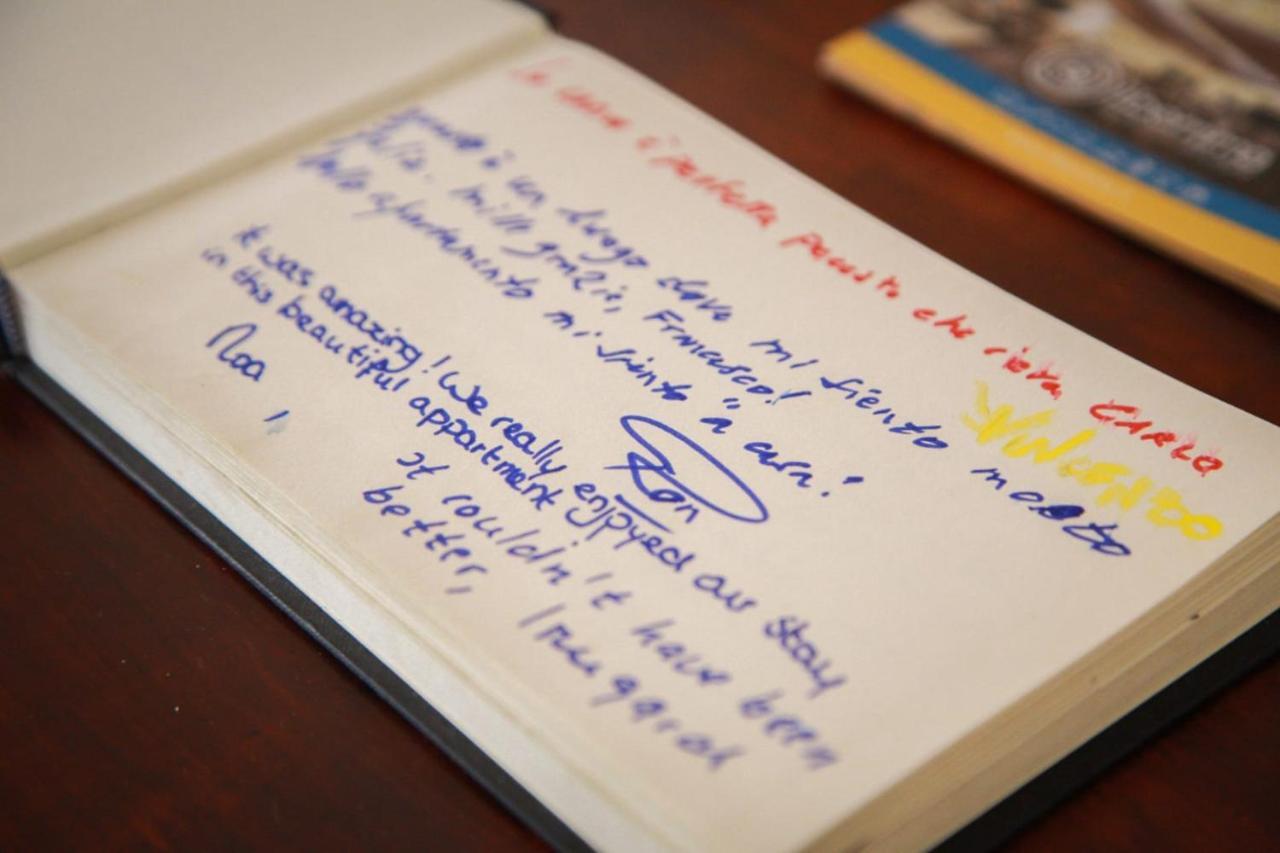 La casa è perfetta peccato che rieta CARLO
VINCENZO
è un luogo dove mi siento molto
feliz. mille grazie, Francesco!
apartamento mi siento a casa!
Ron
It was amazing! We really enjoyed our stay
in this beautiful appartment
Noa
It couldn't have been
better,